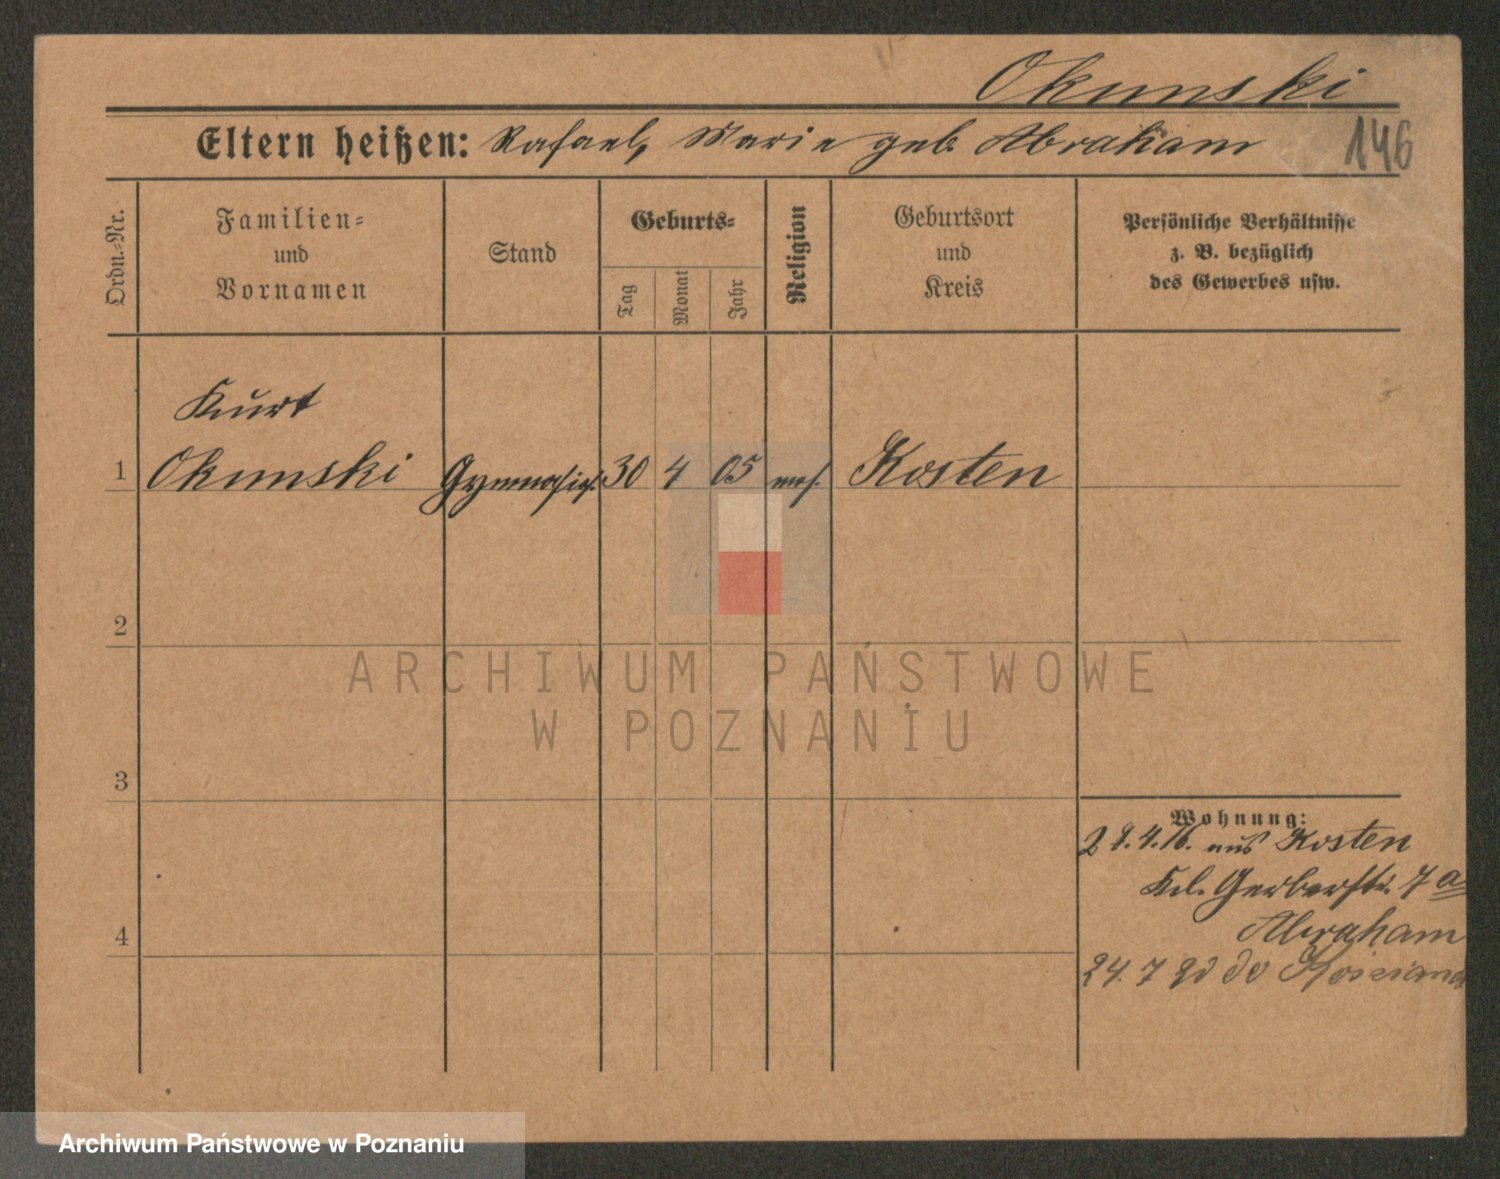 Okunski
Eltern heißen: Rafael, Marie geb. Abraham
146
Ordn.-Nr.
Familien-
und
Vornamen
Stand
Geburts-
Tag
Monat
Jahr
Religion
Geburtsort
und
Kreis
Persönliche Verhältnisse
z. B. bezüglich
des Gewerbes usw.
Kurt
1 Okunski Gymnasias. 30 4 05 mos. Kosten
2
ARCHIWUM PAŃSTWOWE
W POZNANIU
3
Wohnung:
28.4.16. aus Kosten
Kl. Gerberstr. 7 a
4
Abraham
24. 7 do
Archiwum Państwowe w Poznaniu